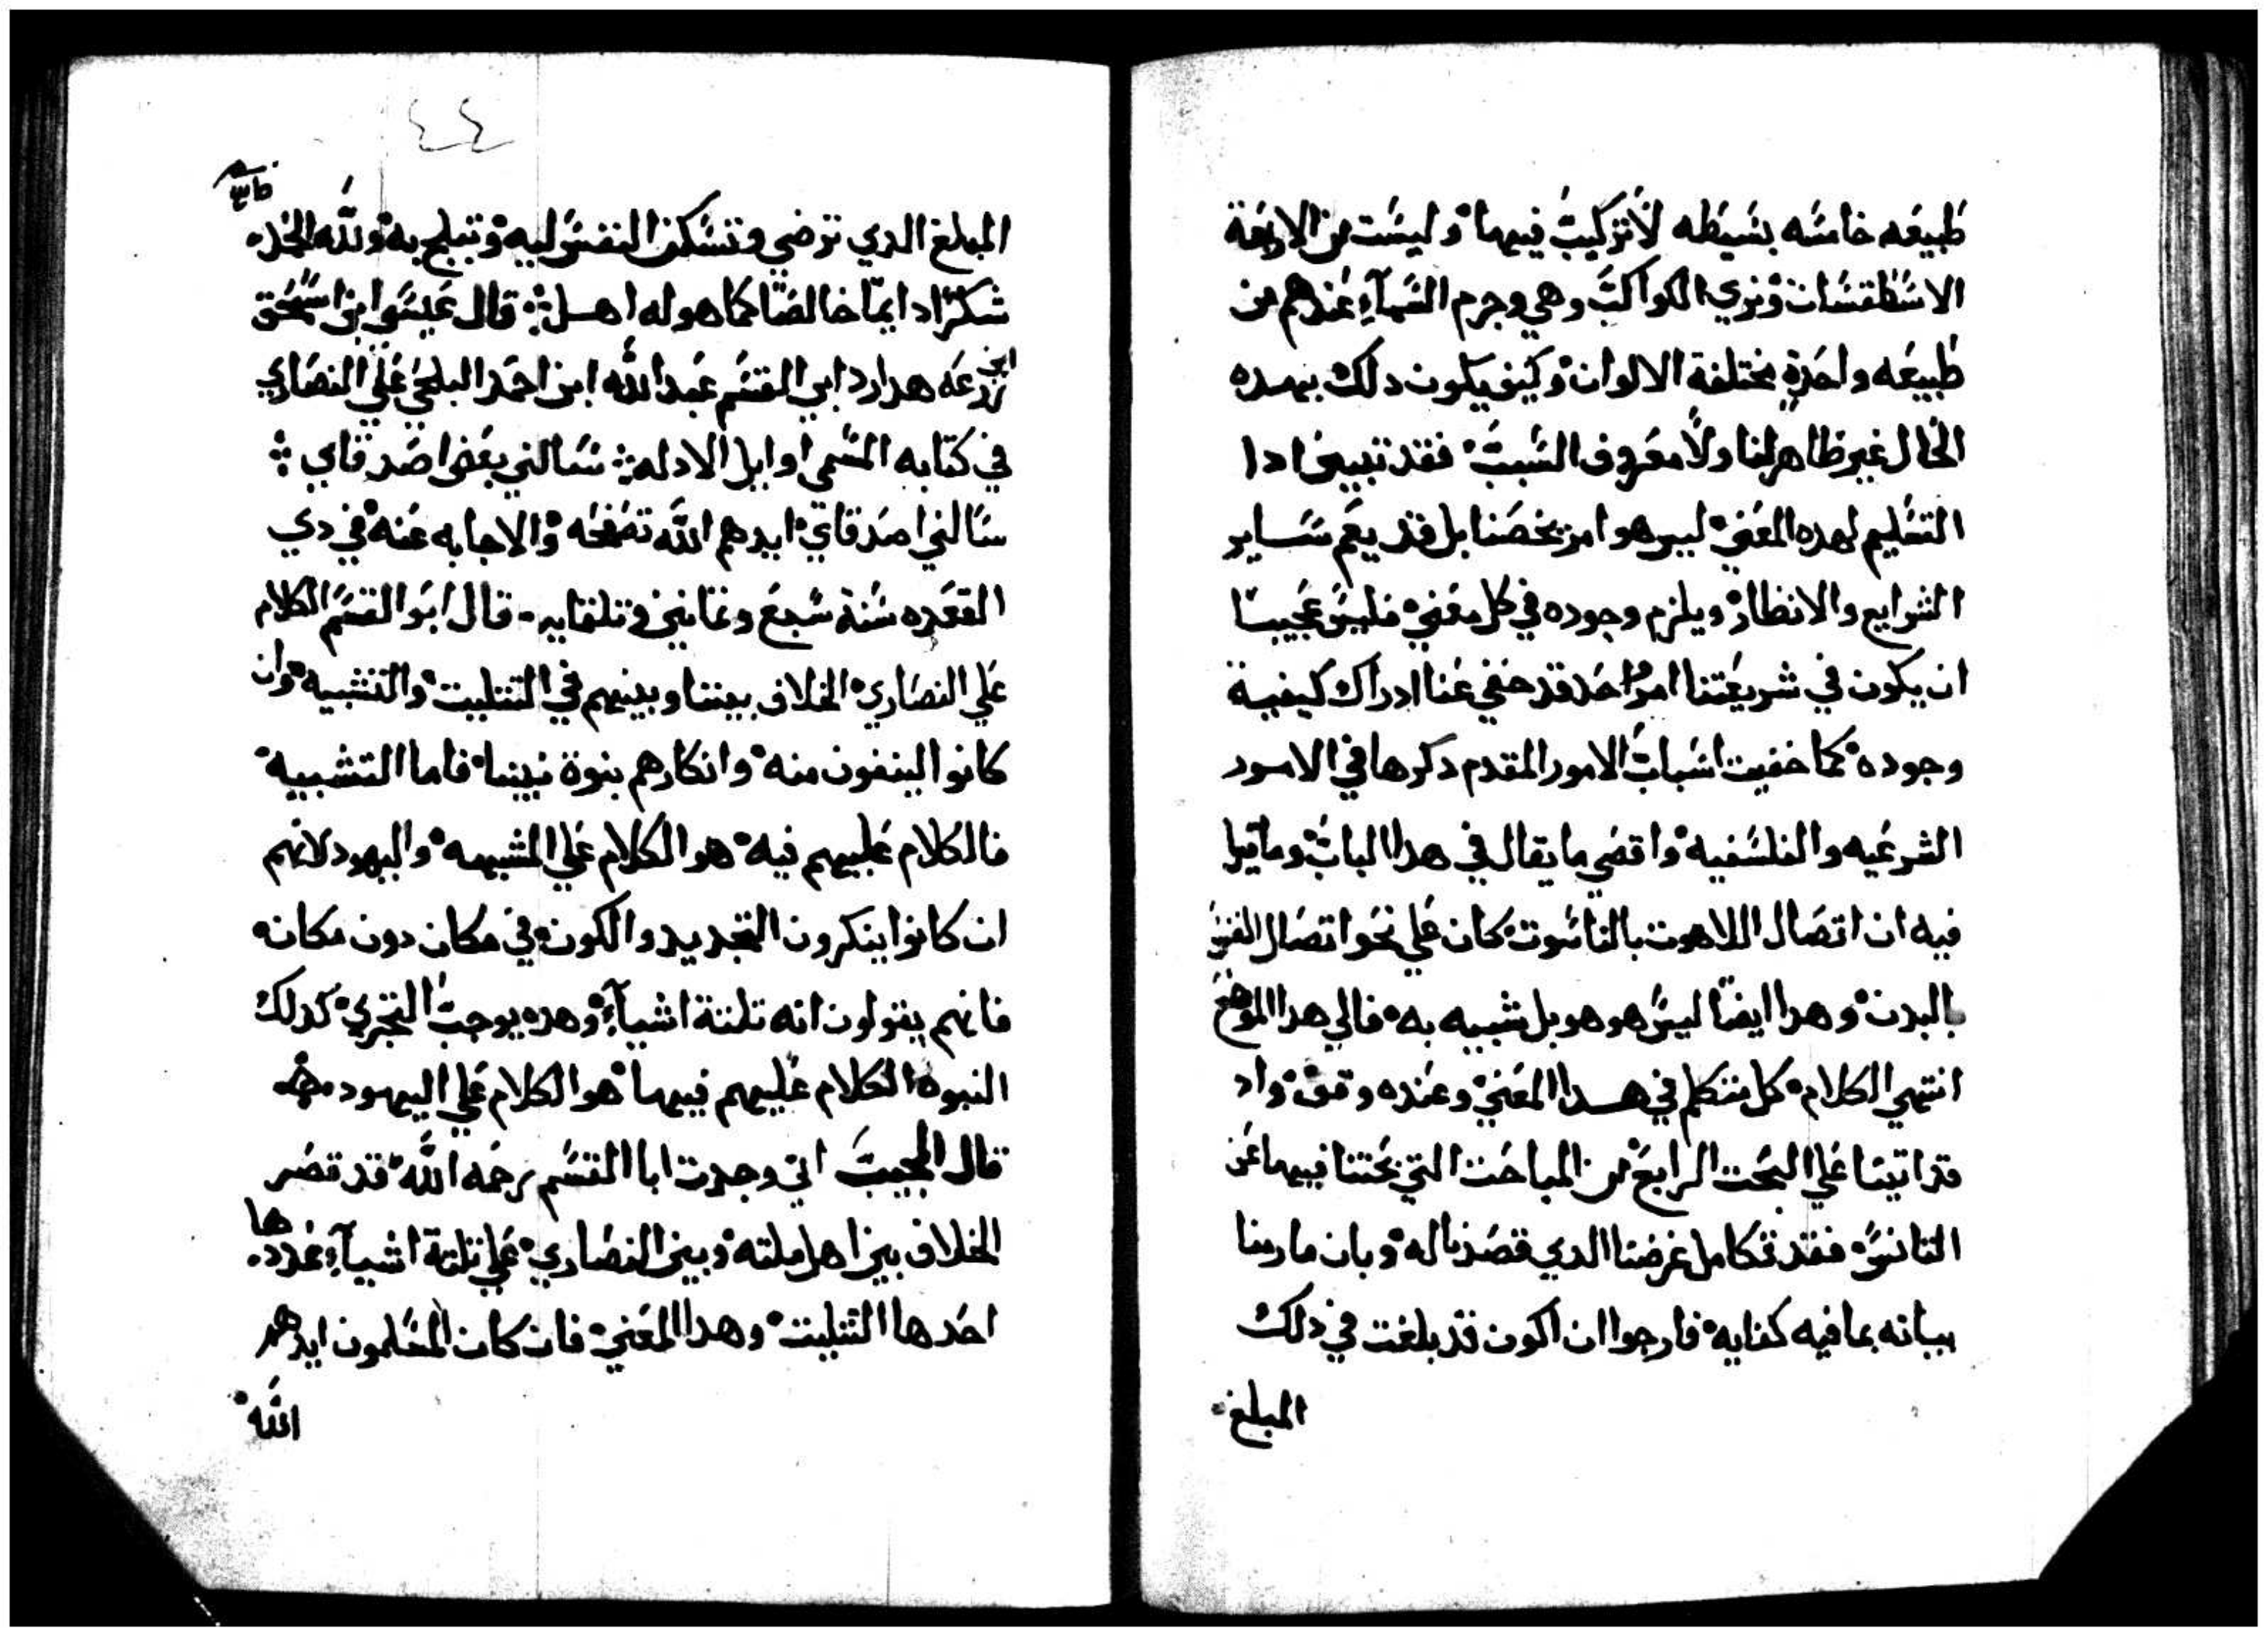 طبيعه خامسه بسيطه لا تركيب فيها وليست من الاربعة
الاسطقسات ونري الكواكب وهي وجرم السمآء عندهم من
طبيعه واحدة مختلفة الالوان وكيف يكون دلك بهده
الحال غير ظاهر لنا ولا معروف السبب فقد تبين ادا
التسليم لهده المعني ليس هو امر يخصنا بل قد يعم ساير
الشرايع والانظار ويلزم وجوده في كل معني فليس عجيبا
ان يكون في شريعتنا امرا احد قد خفي عنا ادراك كيفية
وجوده كما خفيت اسباب الامور المقدم دكرها في الامور
الشرعيه والفلسفيه واقصي ما يقال في هدا الباب وما قيل
فيه ان اتصال اللاهوت بالناسوت كان علي نحو اتصال النفس
بالبدن وهدا ايضا ليس هو هو بل شبيه به فالي هدا الموضع
انتهي الكلام كل متكلم في هدا المعني وعنده وقف واد
قد اتينا علي البحت الرابع من المباحت التي بحتنا فيها عن
التانس فقد تكامل غرضنا الدي قصدنا له وبان ما رمنا
بيانه بما فيه كفايه فارجوا ان اكون قد بلغت في ذلك
المبلغ
٤٤
المبلغ الدي ترضي وتسكن النفس ليه وتبلج به ولله الحمد
شكرا دايما خالصا كما هو له اهل قال عيسي ابن اسحق
ابن زرعه هدا رد ابي القسم عبد الله ابن احمد البلخي علي النصاري
في كتابه المسمي اوايل الادله سالني بعض اصدقاي
سالني اصدقاي ايدهم الله تصفحه والاجابه عنه في دي
القعده سنة سبع وتمانين وتلتمايه قال ابو القسم الكلام
علي النصاري الخلاف بيننا وبينهم في التتليت والتشبيه وان
كانوا ينفون منه وانكارهم بنوة نبينا فاما التشبيه
فالكلام عليهم فيه هو الكلام علي المشبهه واليهود لانهم
ان كانوا ينكرون التجديد والكون في مكان دون مكان
فانهم يقولون انه تلتة اشيآء وهده يوجب التجزي كدلك
النبوه الكلام عليهم فيها هو الكلام علي اليهود
قال المجيب اني وجدت ابا القسم رحمه الله قد قصر
الخلاف بين اهل ملته وبين النصاري علي تلتة اشيآء عددها
احدها التتليت وهدا المعني فان كان المسلمون ايدهم
الله